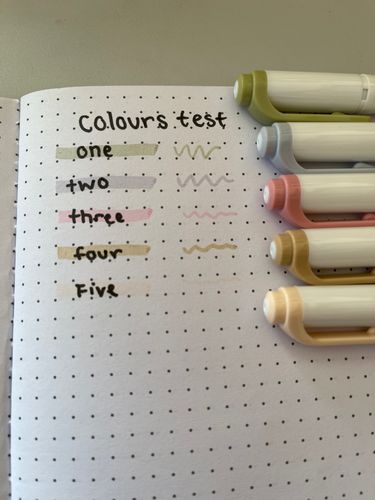 Colours test
one
two
three
four
Five